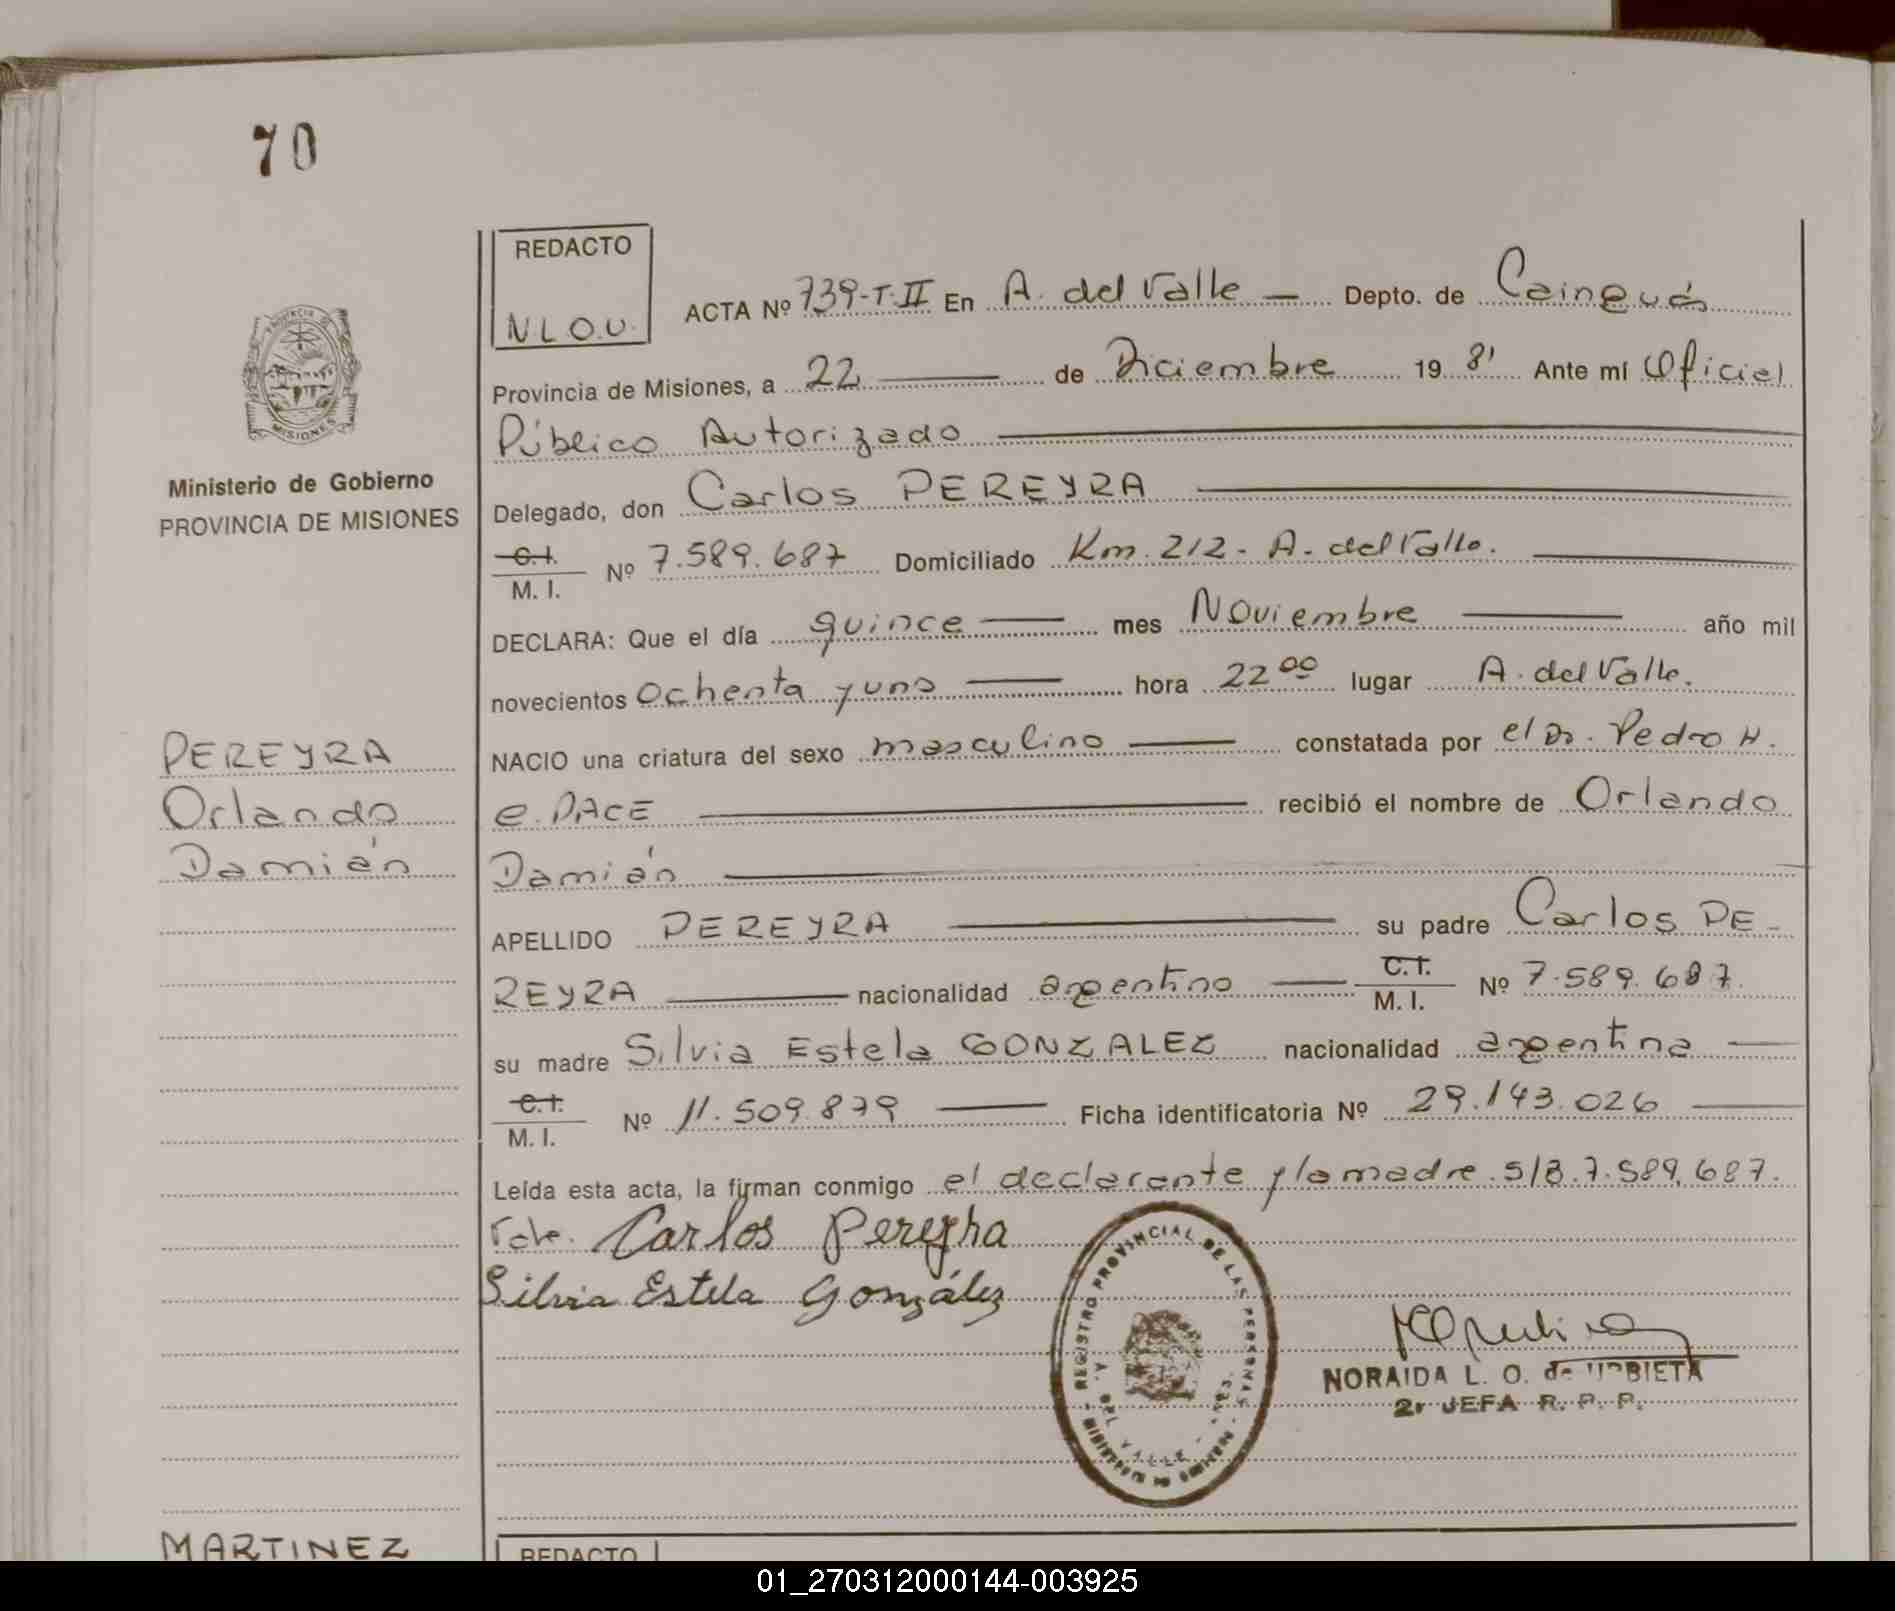 70
REDACTO
N L O.U.
ACTA Nº 739-T.II En A. del Valle — Depto. de Cainguás
Provincia de Misiones, a 22 — de Diciembre 19 81 Ante mí Oficial
Público Autorizado
Delegado, don Carlos PEREYRA
C.I.
M. I. Nº 7.589.687 Domiciliado Km. 212 - A. del Valle.
DECLARA: Que el día quince — mes Noviembre — año mil
novecientos ochenta y uno — hora 22 00 lugar A. del Valle.
NACIO una criatura del sexo masculino — constatada por el Dr. Pedro H.
e. PACE — recibió el nombre de Orlando
Damián
APELLIDO PEREYRA — su padre Carlos PE-
REYRA — nacionalidad argentino — C.I. M. I. Nº 7.589.687.
su madre Silvia Estela GONZALEZ nacionalidad argentina —
C.I.
M. I. Nº 11.509.879 — Ficha identificatoria Nº 29.143.026 —
Leída esta acta, la firman conmigo el declarante y la madre. S/B.7.589.687.
Vale. Carlos Pereyra
Silvia Estela González
REGISTRO PROVINCIAL DE LAS PERSONAS
A. DEL VALLE
NORAIDA L. O. de URBIETA
2ª JEFA R. P. P.
PROVINCIA DE
MISIONES
Ministerio de Gobierno
PROVINCIA DE MISIONES
PEREYRA
Orlando
Damián
MARTINEZ
REDACTO
01_270312000144-003925